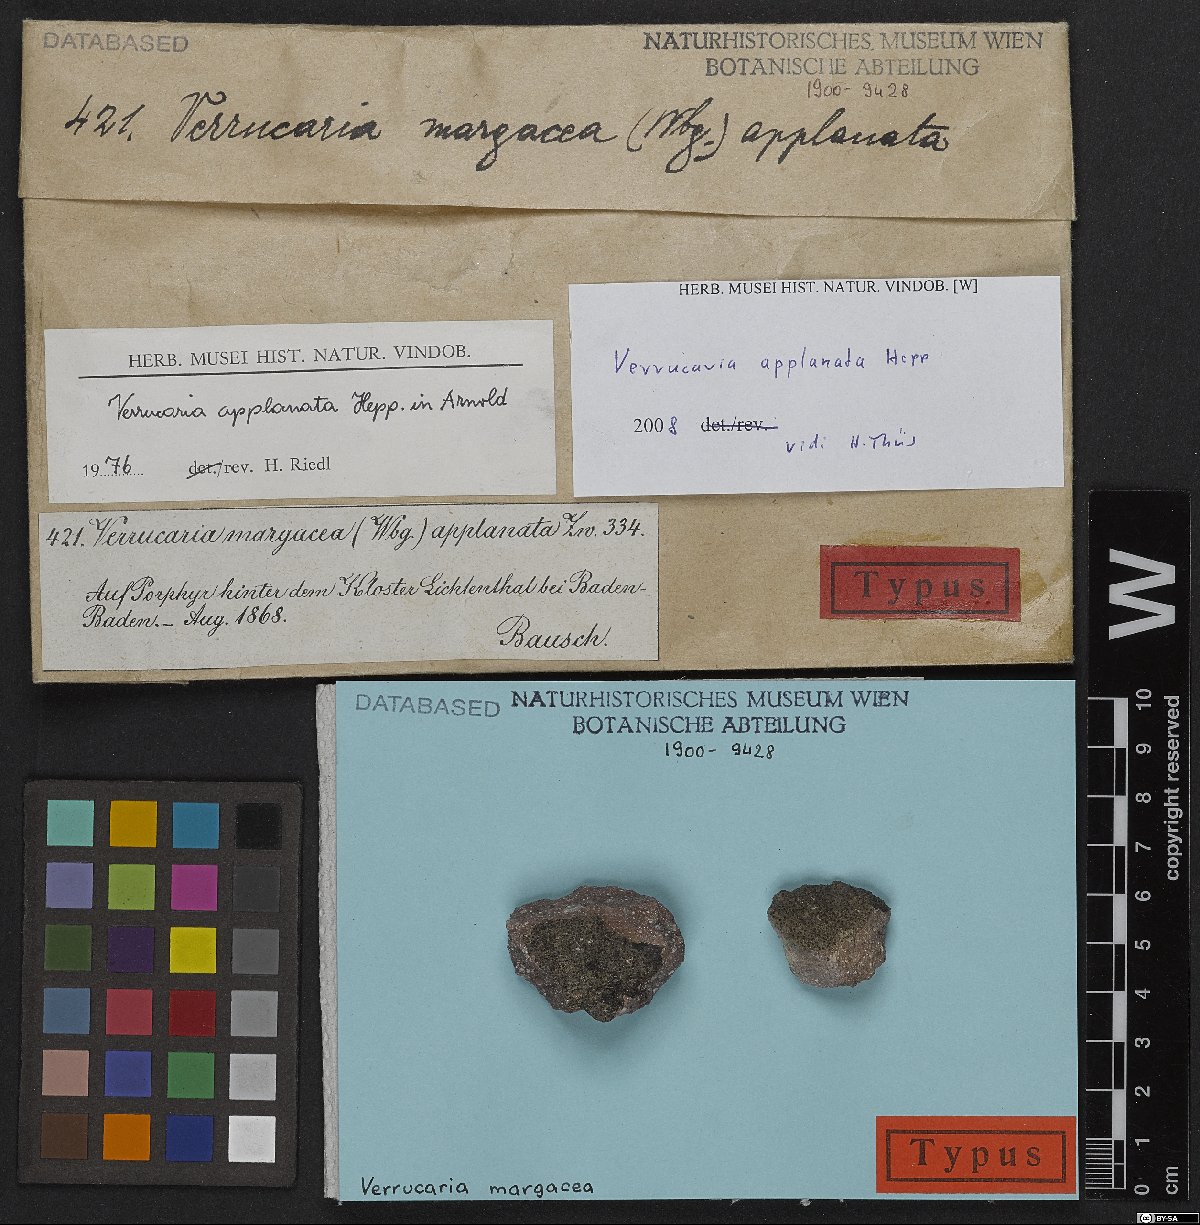 DATABASED
NATURHISTORISCHES MUSEUM WIEN
BOTANISCHE ABTEILUNG
1900-9428
421. Verrucaria margacea (Wbg.) applanata
HERB. MUSEI HIST. NATUR. VINDOB.
Verrucaria applanata Hepp. in Arnold
1976 det./rev. H. Riedl
HERB. MUSEI HIST. NATUR. VINDOB. [W]
Verrucaria applanata Hepp
2008 det./rev.
vidi H. Thüs
421. Verrucaria margacea (Wbg.) applanata Zw. 334.
Auf Porphyr hinter dem Kloster Lichtenthal bei Baden-
Baden. – Aug. 1868.
Bausch.
Typus
DATABASED
NATURHISTORISCHES MUSEUM WIEN
BOTANISCHE ABTEILUNG
1900-9428
Typus
Verrucaria margacea
W
copyright reserved
10
9
8
7
6
5
4
3
2
1
0
cm
cc BY-SA